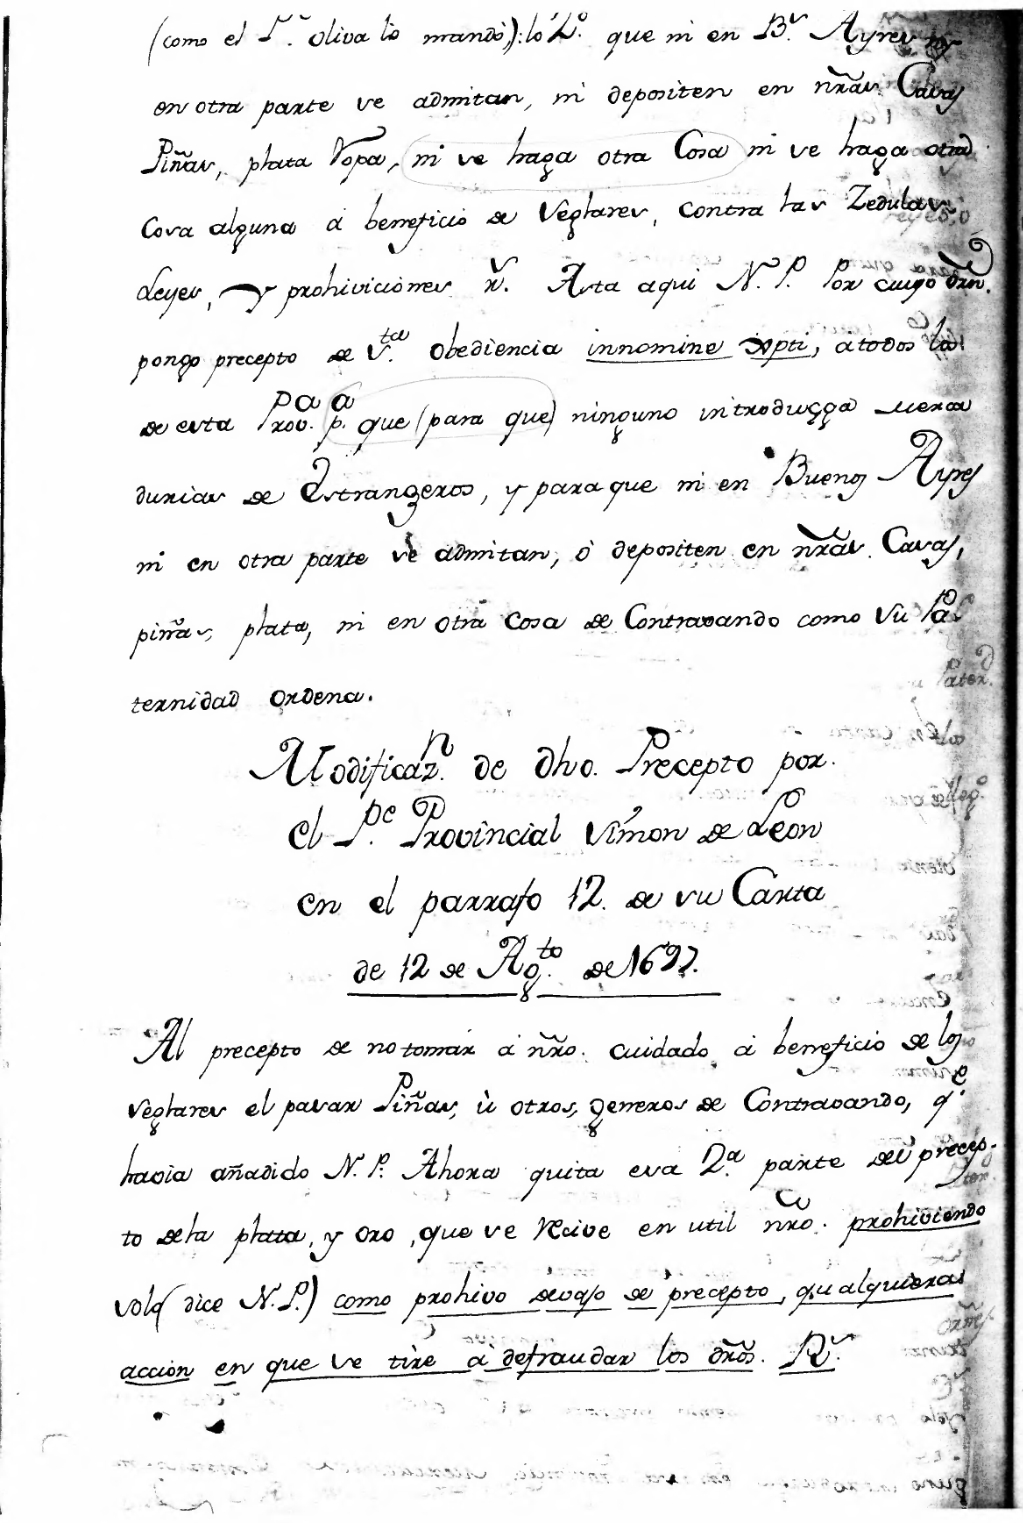 (como el P.ᵉ oliva lo mandó): lo 2.º que ni en B.ˢ Ayres ny
en otra parte se admitan, ni depositen en nr̃as Casas
Piñas, plata Ropa, ni se haga otra Cosa ni se haga otra
Cosa alguna á beneficio de Seglares, contra las Zedulas
Leyes, y prohiviciones R.ˢ Asta aqui N. P. Por cuyo òrñ.
pongo precepto de S.ᵗᵃ obediencia innomine Xpti, átodos los
de esta Prov.ᵃ p.ᵃ que (para que) ninguno introdusga merca
durias de Estrangeros, y para que ni en Buenos Ayres
ni en otra parte sè admitan, ò depositen en nr̃as Casas,
piñas, plata, ni en otra Cosa de Contravando como Su Pa
ternidad ordena.
Modificaz.ⁿ de dho. Precepto por
el P.ᵉ Provincial Simon de Leon
en el parrafo 12. de su Carta
de 12 de Ag.ᵗᵒ de 1697.
Al precepto de no tomar á nr̃o. cuidado á beneficio de los
seglares el pasar Piñas, ù otros, generos de Contravando, q.ᵉ
havia añadido N. P. Ahora quita esa 2.ᵃ parte del precep-
to dela plata, y oro, que se recive en util nr̃o. prohiviendo
solo (dice N. P.) como prohivo devajo de precepto, qualquiera
acción en que se tire á defraudar los dr̃os. R.ˢ